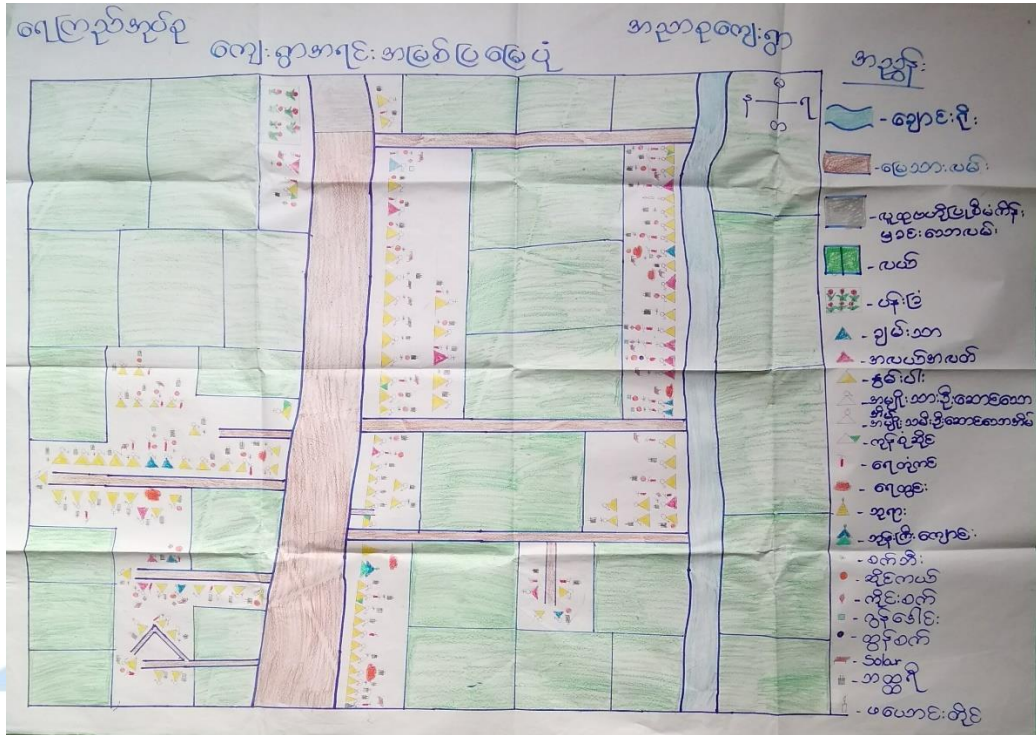 ရေကြည်အုပ်စု
အညာစုကျေးရွာ
ကျေးရွာအရင်းအမြစ်ပြမြေပုံ
မ
န
ရ
တ
အညွှန်း
- ချောင်းရိုး
- မြေသားလမ်း
- လူထုဗဟိုပြုစီမံကိန်း
မှခင်းသောလမ်း
- လယ်
- ပန်းခြံ
- ချမ်းသာ
- အလယ်အလတ်
- နွမ်းပါး
- အမျိုးသားဦးဆောင်သော
အိမ်
- အမျိုးသမီးဦးဆောင်သောအိမ်
- ကုန်စုံဆိုင်
- ရေတုံကင်
- ရေတွင်း
- ဘုရား
- ဘုန်းကြီးကျောင်း
- စက်ဘီး
- ဆိုင်ကယ်
- ကိုင်းစက်
- ထွန်စက်
- Solar
- ဘတ္ထရီ
- ဖယောင်းတိုင်